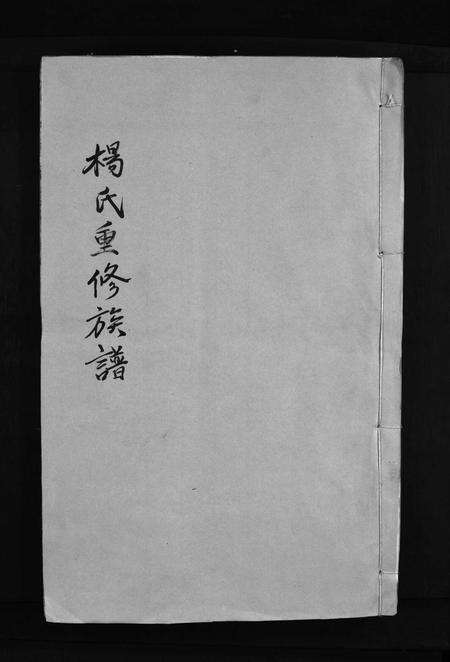 楊氏重修族譜